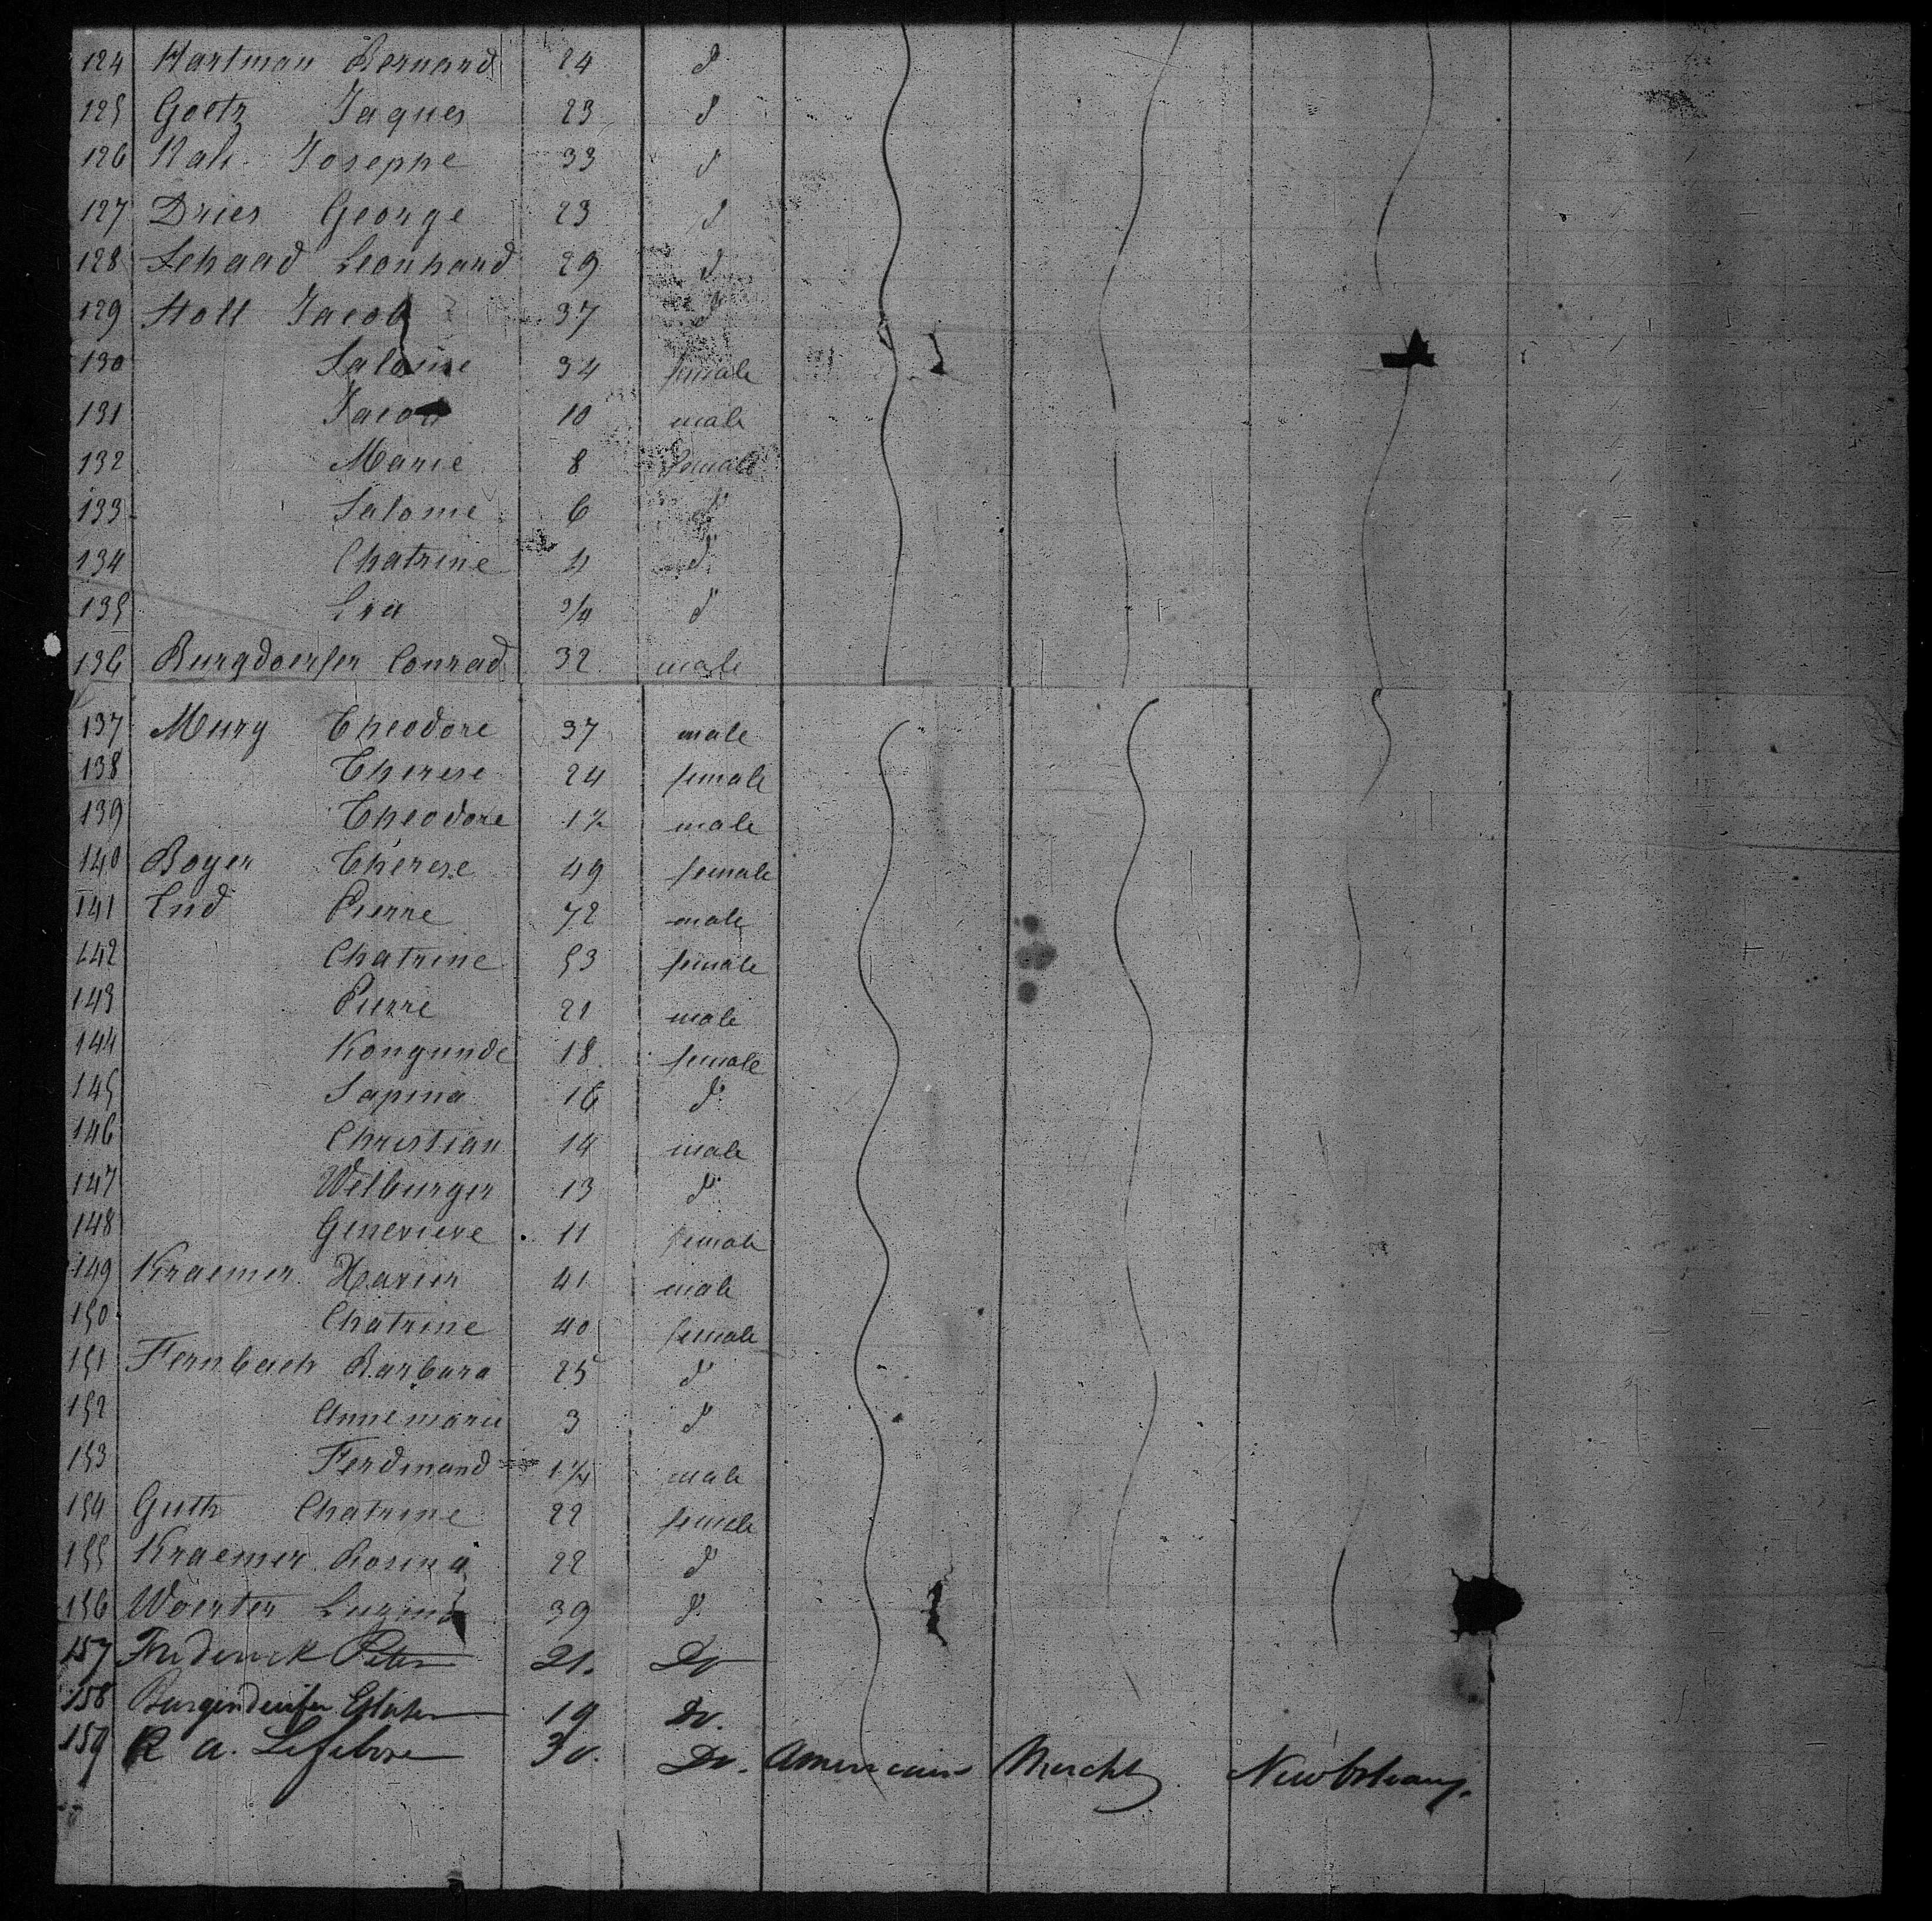 124 Hartman Bernard 24 d
125 Goetz Jaques 23 d
126 Josephe 33 d
127 Dries George 23 d
128 Schaad Leonhard 29 d
129 Holl Jacob 37 d
130 Salome 34 female
131 Jacob 10 male
132 Marie 8 female
133 Salome 6 d
134 Chatrine 4 d
135 3/4 d
136 Burgdoerfer Conrad 32 male
137 Mury Theodore 37 male
138 Therese 24 female
139 Theodore male
140 Boyer Therese 49 female
141 Pierre 72 male
142 Chatrine 53 female
143 Pierre 21 male
144 Kongunde 18 female
145 Sapina 16 d
146 Christian 14 male
147 Welburger 13 d
148 Genevieve 11 female
149 Kraemer Xavier 41 male
150 Chatrine 40 female
151 Fernbach Barbara 25 d
152 Annemarie 3 d
153 Ferdinand 1 1/4 male
154 Guth Chatrine 22 female
155 Kraemer Rosina 22 d
156 Woerter 39 d
157 Frederick Peter 21. Do
158 19 Do.
159 A. Lefebvre 30. Do. American Mercht New Orleans.